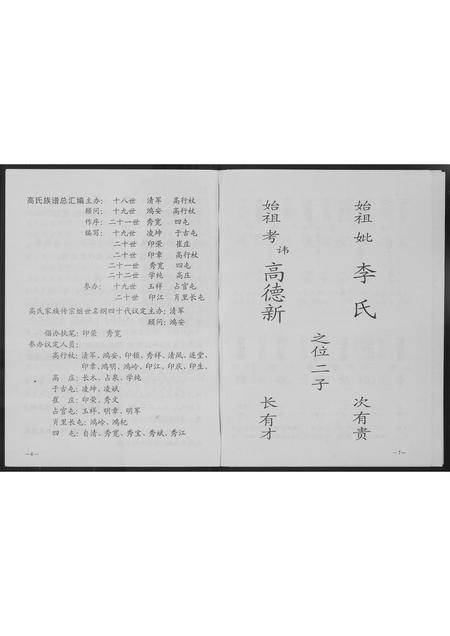 高氏族谱总汇编主办： 十八世 清军 高行杖
顾问： 十九世 鸿安 高行杖
作序： 二十一世 秀宽 四屯
编写： 十九世 凌坤 于古屯
二十世 印荣 崔庄
二十世 印章 高行杖
二十一世 秀宽 四屯
二十二世 学纯 高庄
参办： 十九世 玉祥 占官屯
二十世 印江 肖里长屯
高氏家族传宗继世名纲四十代议定主办： 清军
顾问： 鸿安
倡办执笔： 印荣 秀宽
参办议定人员：
高行杖： 清军、鸿安、印领、秀祥、清凤、逐堂、
印章、鸿明、鸿岭、印江、印庆、印生、
高 庄： 长木、占泉、学纯
于古屯： 凌坤、凌斌
崔 庄： 印荣、秀文
占官屯： 玉祥、明章、明军
肖里长屯： 鸿岭、鸿杞
四 屯： 自清、秀宽、秀宝、秀斌、秀江
—6—
始祖妣 李氏 次有贵
之位二子
始祖考讳 高德新 长有才
—7—